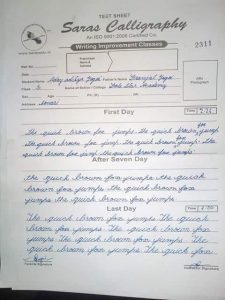 TEST SHEET
Saras Calligraphy
An ISO 9001:2008 Certified Co.
Writing Improvement Classes
2311
Roll No.
Franchisee Name & Address
Affix Photograph
Date
Student Name Father's Name
Class 5 Name of School / College Academy
Age Ph. (R) (M)
Address
First Day
Time
the quick brown fox jumps the quick brown fox jump
the quick brown fox jumps the quick brown fox jumps
the quick brown fox jumps the quick brown fox jumps
After Seven Day
the quick brown fox jumps the quick
brown fox jumps the quick brown fox
jumps the quick brown fox jumps
Last Day
Time
The quick brown fox jumps The quick
brown fox jumps The quick brown fox
jumps The quick brown fox jumps The
quick brown fox jumps The quick
brown fox jumps The quick brown fox